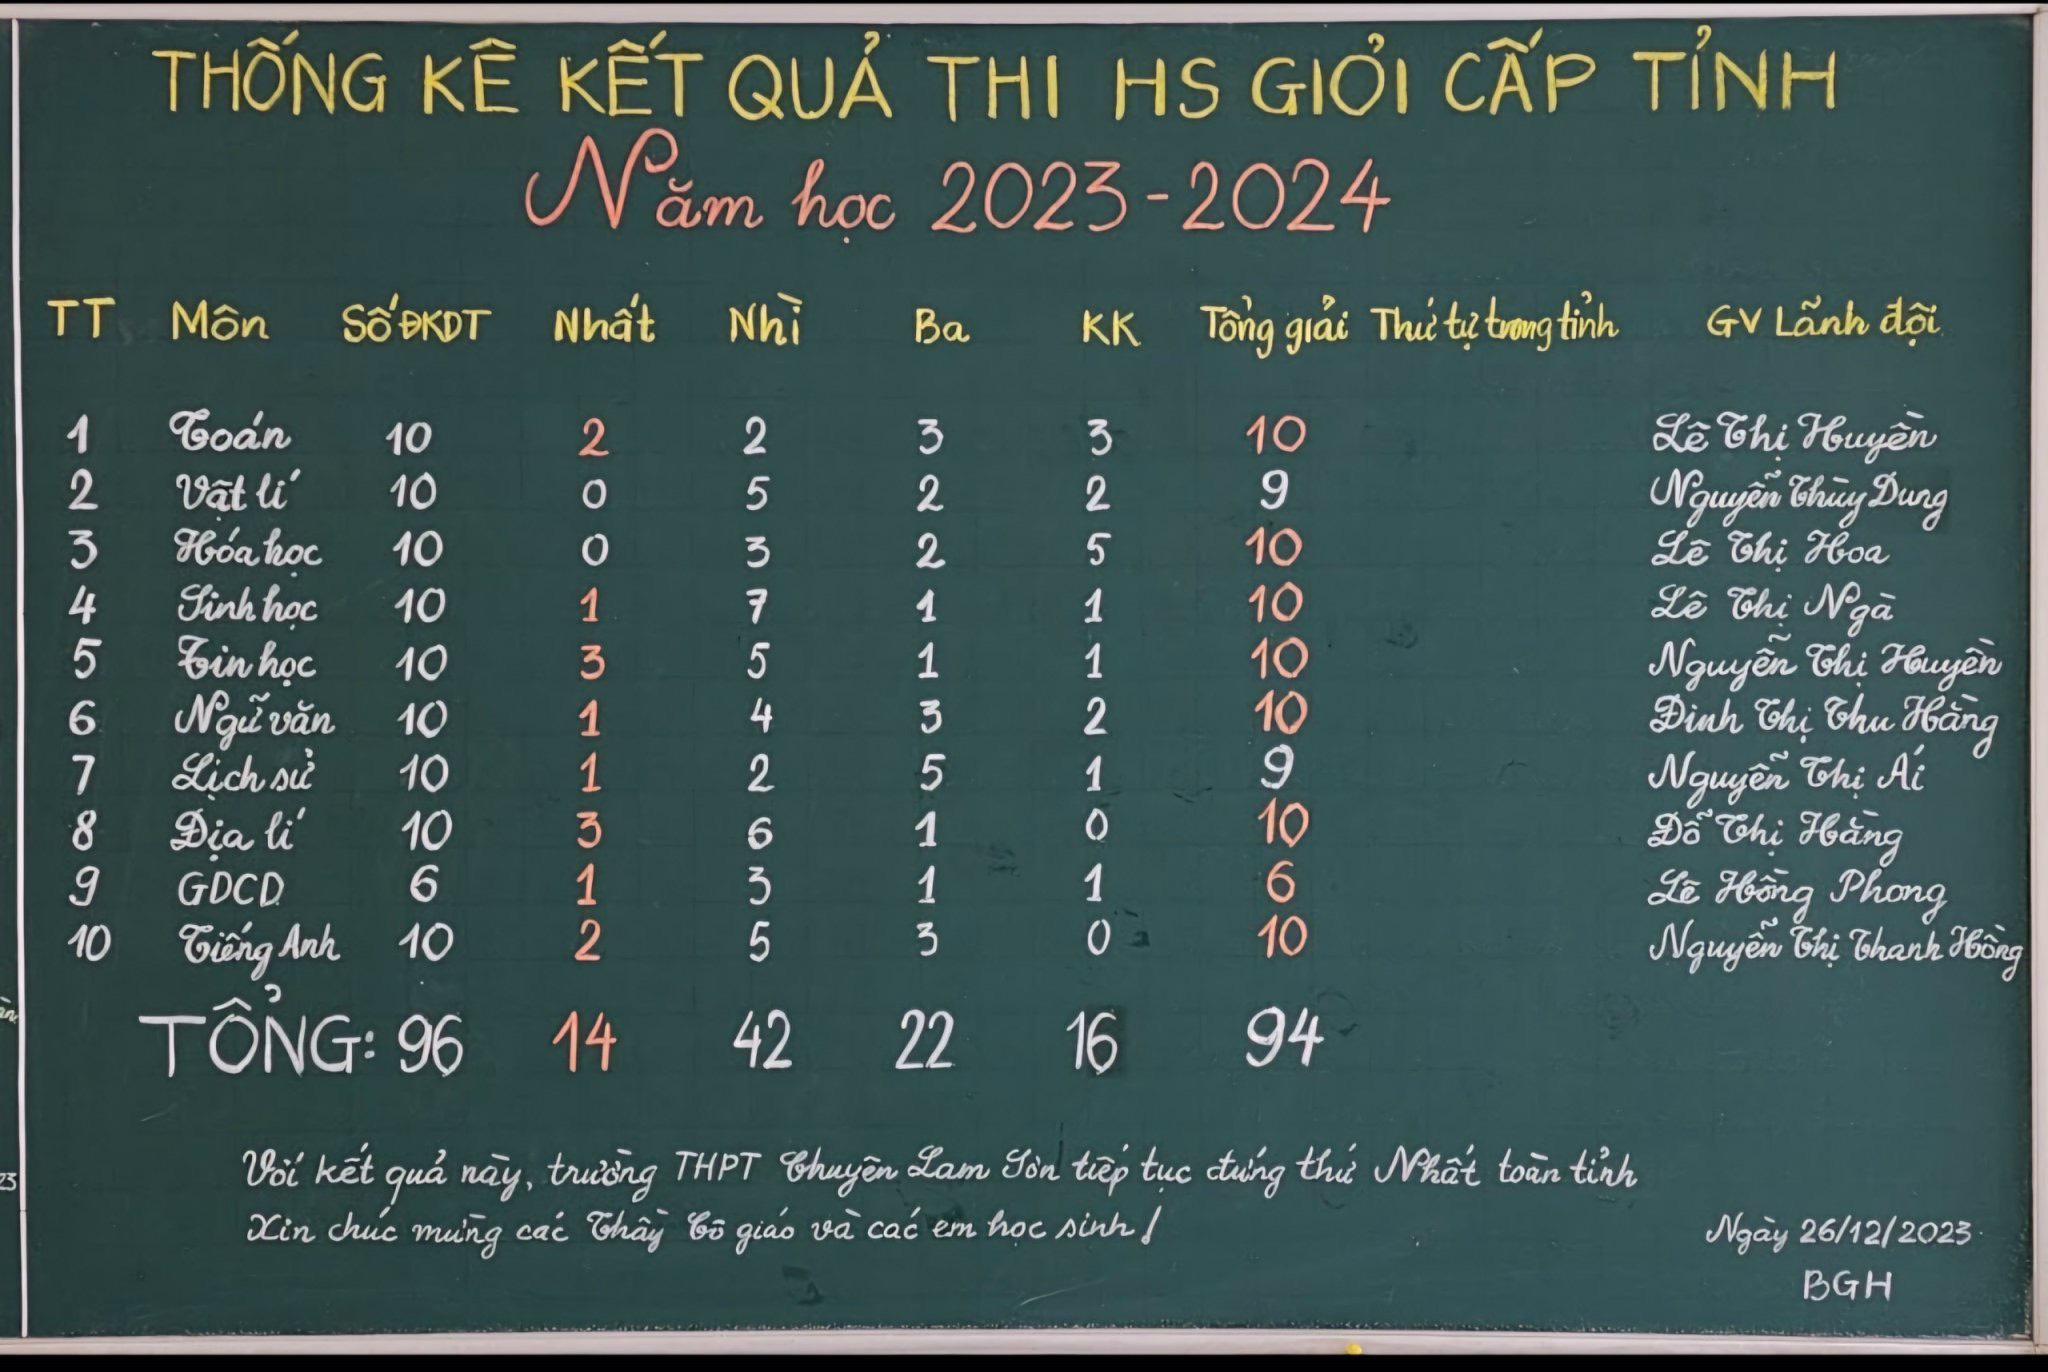 THỐNG KÊ KẾT QUẢ THI HS GIỎI CẤP TỈNH
Năm học 2023-2024
TT Môn Số ĐKDT Nhất Nhì Ba KK Tổng giải Thứ tự trong tỉnh GV Lãnh đội
1 Toán 10 2 2 3 3 10 Lê Thị Huyền
2 Vật lí 10 0 5 2 2 9 Nguyễn Thùy Dung
3 Hóa học 10 0 3 2 5 10 Lê Thị Hoa
4 Sinh học 10 1 7 1 1 10 Lê Thị Ngà
5 Tin học 10 3 5 1 1 10 Nguyễn Thị Huyền
6 Ngữ văn 10 1 4 3 2 10 Đinh Thị Thu Hằng
7 Lịch sử 10 1 2 5 1 9 Nguyễn Thị Ái
8 Địa lí 10 3 6 1 0 10 Đỗ Thị Hằng
9 GDCD 6 1 3 1 1 6 Lê Hồng Phong
10 Tiếng Anh 10 2 5 3 0 10 Nguyễn Thị Thanh Hồng
TỔNG: 96 14 42 22 16 94
Với kết quả này, trường THPT Chuyên Lam Sơn tiếp tục đứng thứ Nhất toàn tỉnh
Xin chúc mừng các Thầy Cô giáo và các em học sinh!
Ngày 26/12/2023
BGH